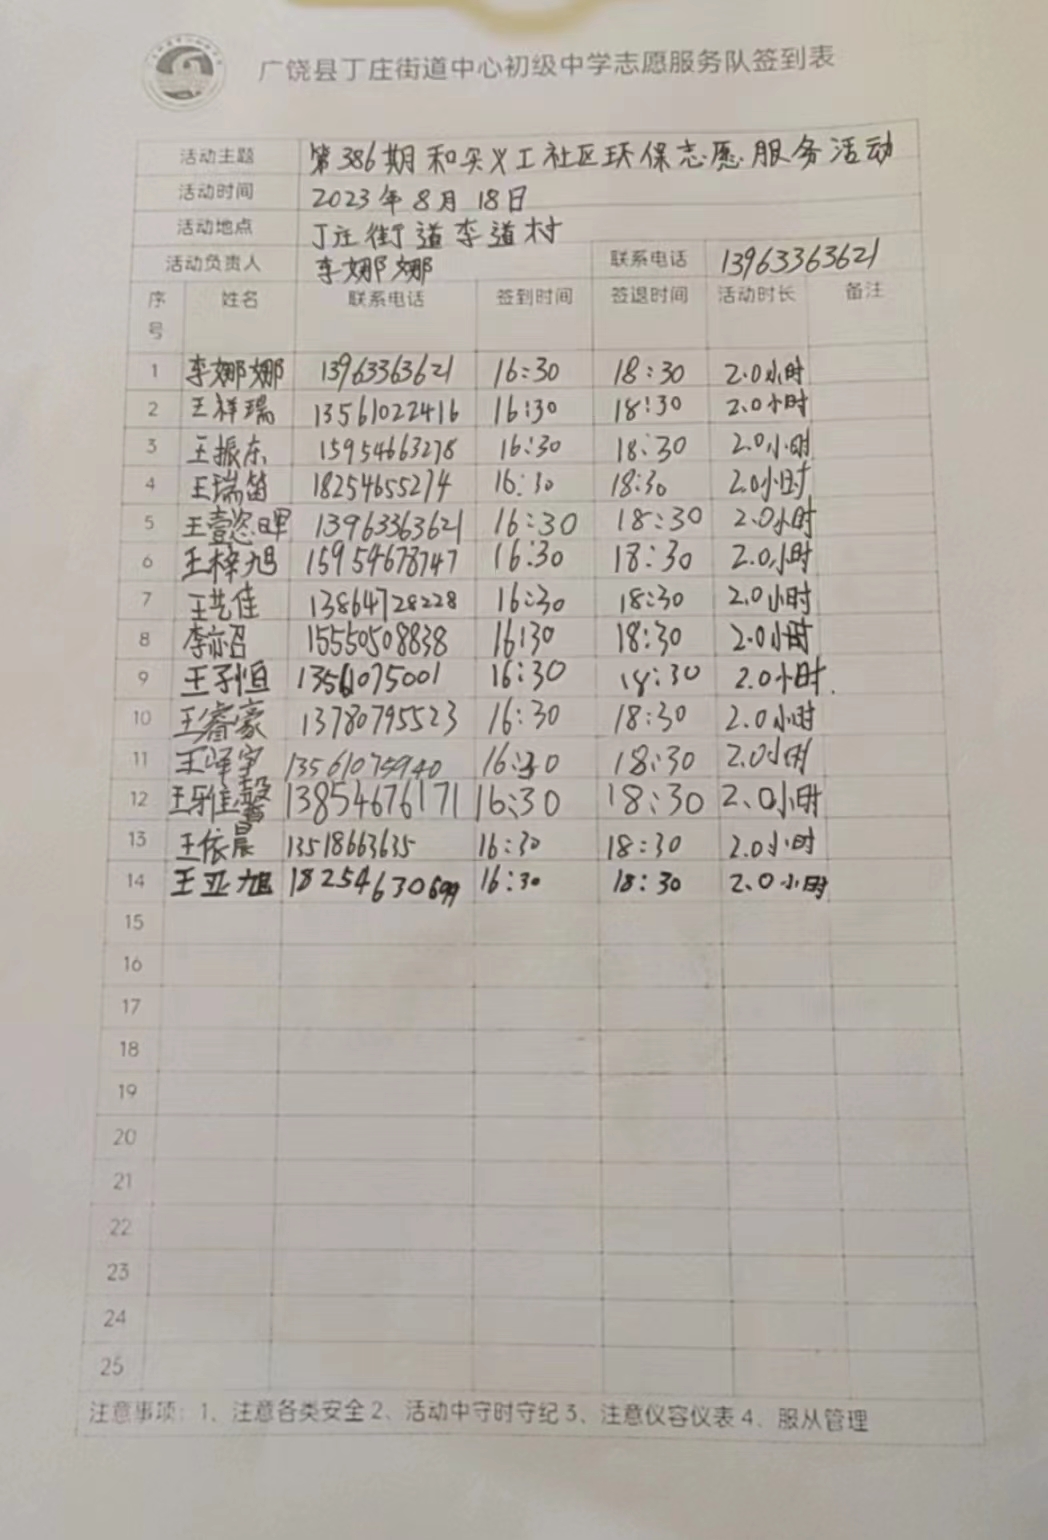 广饶县丁庄街道中心初级中学志愿服务队签到表
活动主题 第386期和实义工社区环保志愿服务活动
活动时间 2023年8月18日
活动地点 丁庄街道李道村
活动负责人 李娜娜 联系电话 13963363621
序号 姓名 联系电话 签到时间 签退时间 活动时长 备注
1 李娜娜 13963363621 16:30 18:30 2.0小时
2 王祥瑞 13561022416 16:30 18:30 2.0小时
3 王振东 15954663278 16:30 18:30 2.0小时
4 王瑞笛 18254655274 16:30 18:30 2.0小时
5 王壹恣暉 13963363621 16:30 18:30 2.0小时
6 王梓旭 15954678747 16:30 18:30 2.0小时
7 王艺佳 13864728228 16:30 18:30 2.0小时
8 李亦招 15550508838 16:30 18:30 2.0小时
9 王子恒 13561075001 16:30 18:30 2.0小时.
10 王睿豪 13780795523 16:30 18:30 2.0小时
11 王泽宇 13561075940 16:30 18:30 2.0小时
12 王雅馨 13854676171 16:30 18:30 2.0小时
13 王依晨 13518663635 16:30 18:30 2.0小时
14 王亚旭 18254630699 16:30 18:30 2.0小时
15
16
17
18
19
20
21
22
23
24
25
注意事项：1、注意各类安全 2、活动中守时守纪 3、注意仪容仪表 4、服从管理